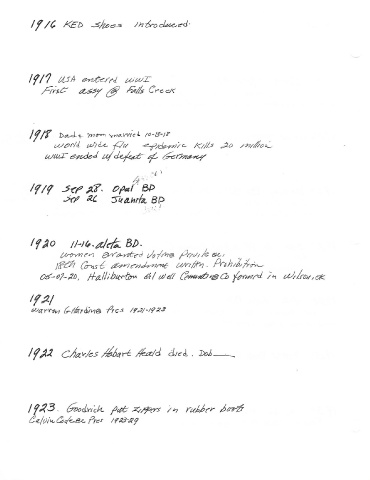 1916 KED Shoes introduced.
1917 USA entered WWI
First assy @ Falls Creek
1918 Dad & mom married 10-13-18
world wide flu epidemic kills 20 million
WWI ended w/defeat of Germany
1919 Sep 28. Opal BD
Sep 26 Juanita BD
1920 11-16. aleta BD.
women granted voting Privilege.
18th Const amendment written. Prohibition
Halliburton Oil well Cementing Co formed in Wilson, ok
1921
Warren G Harding Pres 1921-1923
1922 Charles Hobart Heald died. Dob
1923. Goodrich put zippers in rubber boots
Calvin Coolidge Pres 1923-29